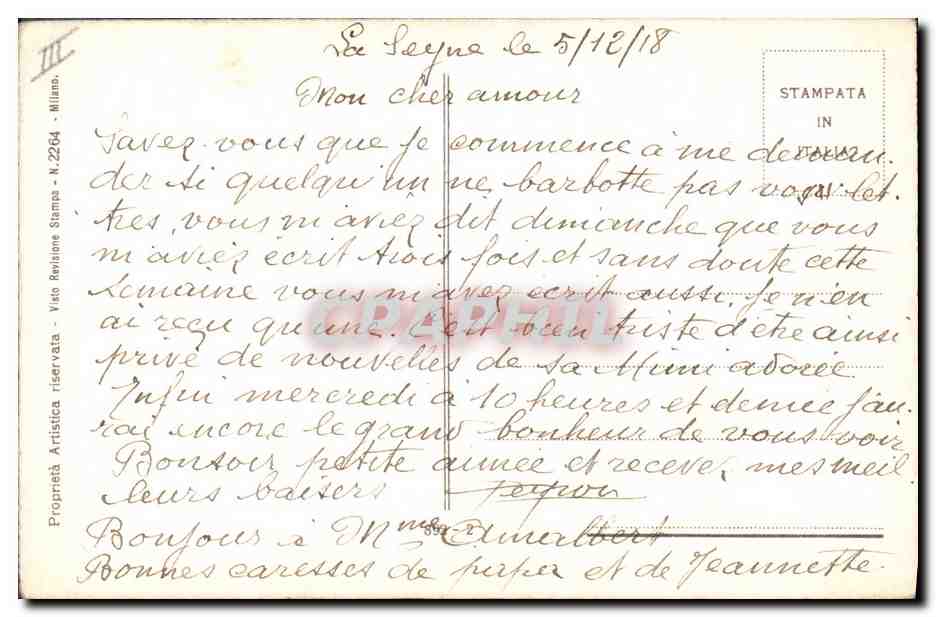 III
La Seyne le 5/12/18
Mon cher amour
STAMPATA
IN
ITALIA
Savez vous que je commence à me deman.
der si quelqu'un ne barbotte pas vos let.
tres, vous m'aviez dit dimanche que vous
m'aviez écrit trois fois et sans doute cette
semaine vous m'avez écrit aussi. Je n'en
ai reçu qu'une. C'est bien triste d'être ainsi
privé de nouvelles de sa Mimi adorée
Enfin mercredi à 10 heures et demie j'au.
rai encore le grand bonheur de vous voir
Bonsoir petite aimée et recevez mes meil
leurs baisers
Bonjour à Mme
Bonnes caresses de papa et de Jeannette.
Proprietà Artistica riservata - Visto Revisione Stampa - N. 2264 - Milano.
CPAPHIL